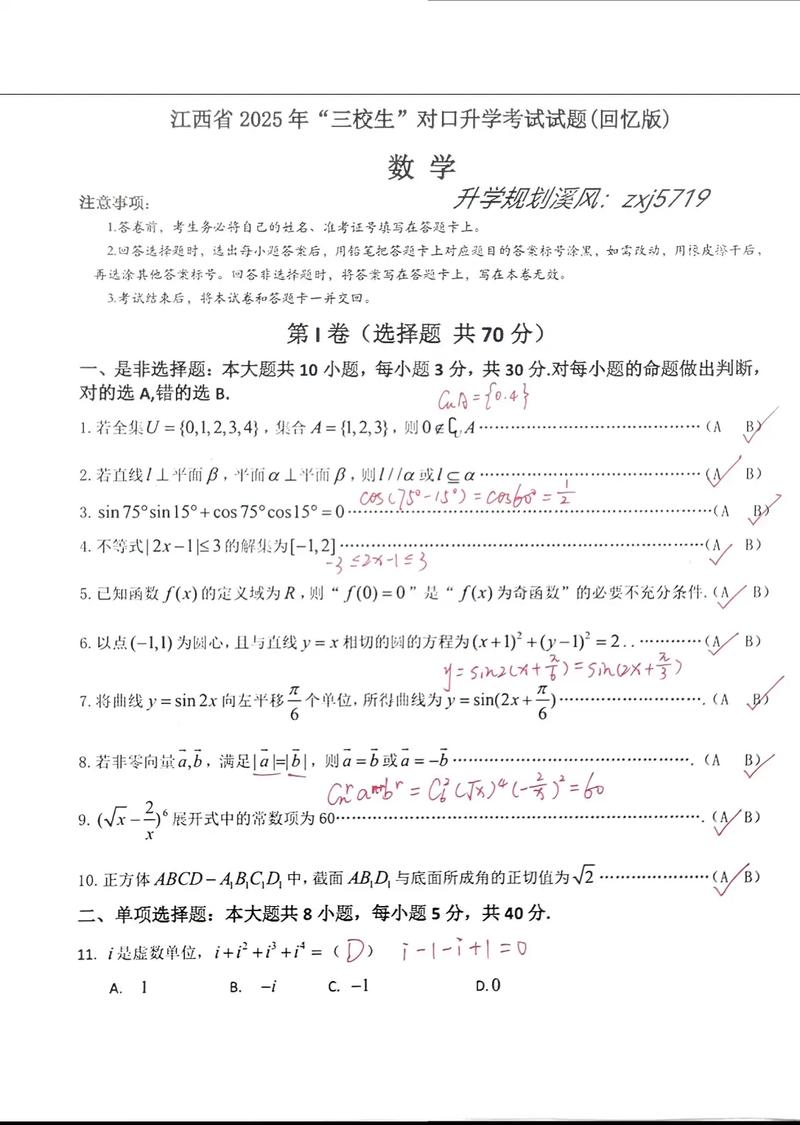 江西省 2025 年“三校生”对口升学考试试题(回忆版)
数 学
升学规划溪风：zxj5719
注意事项：
1.答卷前，考生务必将自己的姓名、准考证号填写在答题卡上。
2.回答选择题时，选出每小题答案后，用铅笔把答题卡上对应题目的答案标号涂黑，如需改动，用橡皮擦干后，
再选涂其他答案标号。回答非选择题时，将答案写在答题卡上，写在本卷无效。
3.考试结束后，将本试卷和答题卡一并交回。
第 I 卷（选择题 共 70 分）
一、是非选择题：本大题共 10 小题，每小题 3 分，共 30 分.对每小题的命题做出判断，
对的选 A,错的选 B.
C∪A={0.4}
1. 若全集U = {0,1,2,3,4}，集合 A = {1,2,3}，则0∉∁UA⋯⋯⋯⋯⋯⋯（A B）
2. 若直线l⊥平面β，平面α⊥平面β，则l//α或l⊆α⋯⋯⋯⋯⋯⋯（A B）
cos(75°-15°)=cos60°=1/2
3. sin75°sin15°+cos75°cos15°=0⋯⋯⋯⋯⋯⋯(A B）
4. 不等式|2x−1|≤3的解集为[−1,2]⋯⋯⋯⋯⋯⋯(A B）
-3≤2x-1≤3
5. 已知函数 f(x)的定义域为R，则“ f(0)=0”是“ f(x)为奇函数”的必要不充分条件.（A B）
6. 以点(−1,1)为圆心，且与直线 y=x相切的圆的方程为(x+1)²+(y−1)²=2..⋯⋯⋯（A B）
y=sin2(x+π/6)=sin(2x+π/3)
7. 将曲线 y=sin2x向左平移π/6个单位，所得曲线为y=sin(2x+π/6)⋯⋯⋯⋯.（A B）
8. 若非零向量a⃗,b⃗，满足|a⃗|=|b⃗|，则a⃗=b⃗或a⃗=−b⃗⋯⋯⋯⋯⋯⋯.（A B）
=C₆²(√x)⁴(-2/x)²=60
9. (√x−2/x)⁶展开式中的常数项为 60⋯⋯⋯⋯⋯⋯.（A B）
10. 正方体ABCD−A₁B₁C₁D₁中，截面AB₁D₁与底面所成角的正切值为√2⋯⋯⋯⋯（A B）
二、单项选择题：本大题共 8 小题，每小题 5 分，共 40 分.
11. i是虚数单位，i+i²+i³+i⁴=（ D ） i-1-i+1=0
A. 1 B. −i C. −1 D. 0